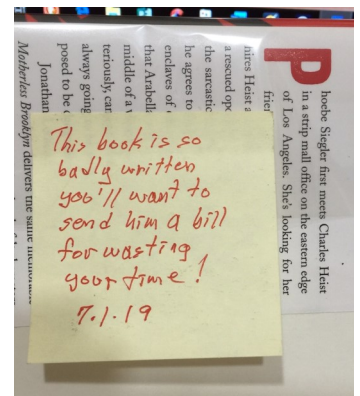 Phoebe Siegler first meets Charles Heist
in a strip mall office on the eastern edge
of Los Angeles. She's looking for her
hires Heist
a rescued
the sarcastic
he agrees to
enclaves of
that Arabella
middle of a
teriously,
always going
posed to be
Jonathan
Motherless Brooklyn delivers the same
This book is so
badly written
you'll want to
send him a bill
for wasting
your time!
7.1.19